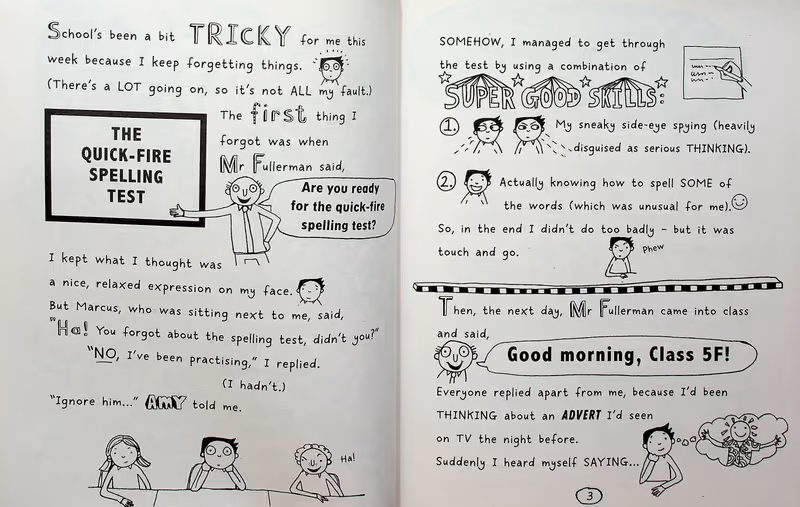 School's been a bit TRICKY for me this
week because I keep forgetting things.
(There's a LOT going on, so it's not ALL my fault.)
THE
QUICK-FIRE
SPELLING
TEST
The first thing I
forgot was when
Mr Fullerman said,
Are you ready
for the quick-fire
spelling test?
I kept what I thought was
a nice, relaxed expression on my face.
But Marcus, who was sitting next to me, said,
"Ha! You forgot about the spelling test, didn't you?"
"NO, I've been practising," I replied.
(I hadn't.)
"Ignore him..." AMY told me.
Ha!
SOMEHOW, I managed to get through
the test by using a combination of
SUPER GOOD SKILLS:
1. My sneaky side-eye spying (heavily
disguised as serious THINKING).
2. Actually knowing how to spell SOME of
the words (which was unusual for me).
So, in the end I didn't do too badly - but it was
touch and go.
Phew
Then, the next day, Mr Fullerman came into class
and said,
Good morning, Class 5F!
Everyone replied apart from me, because I'd been
THINKING about an ADVERT I'd seen
on TV the night before.
Suddenly I heard myself SAYING...
3